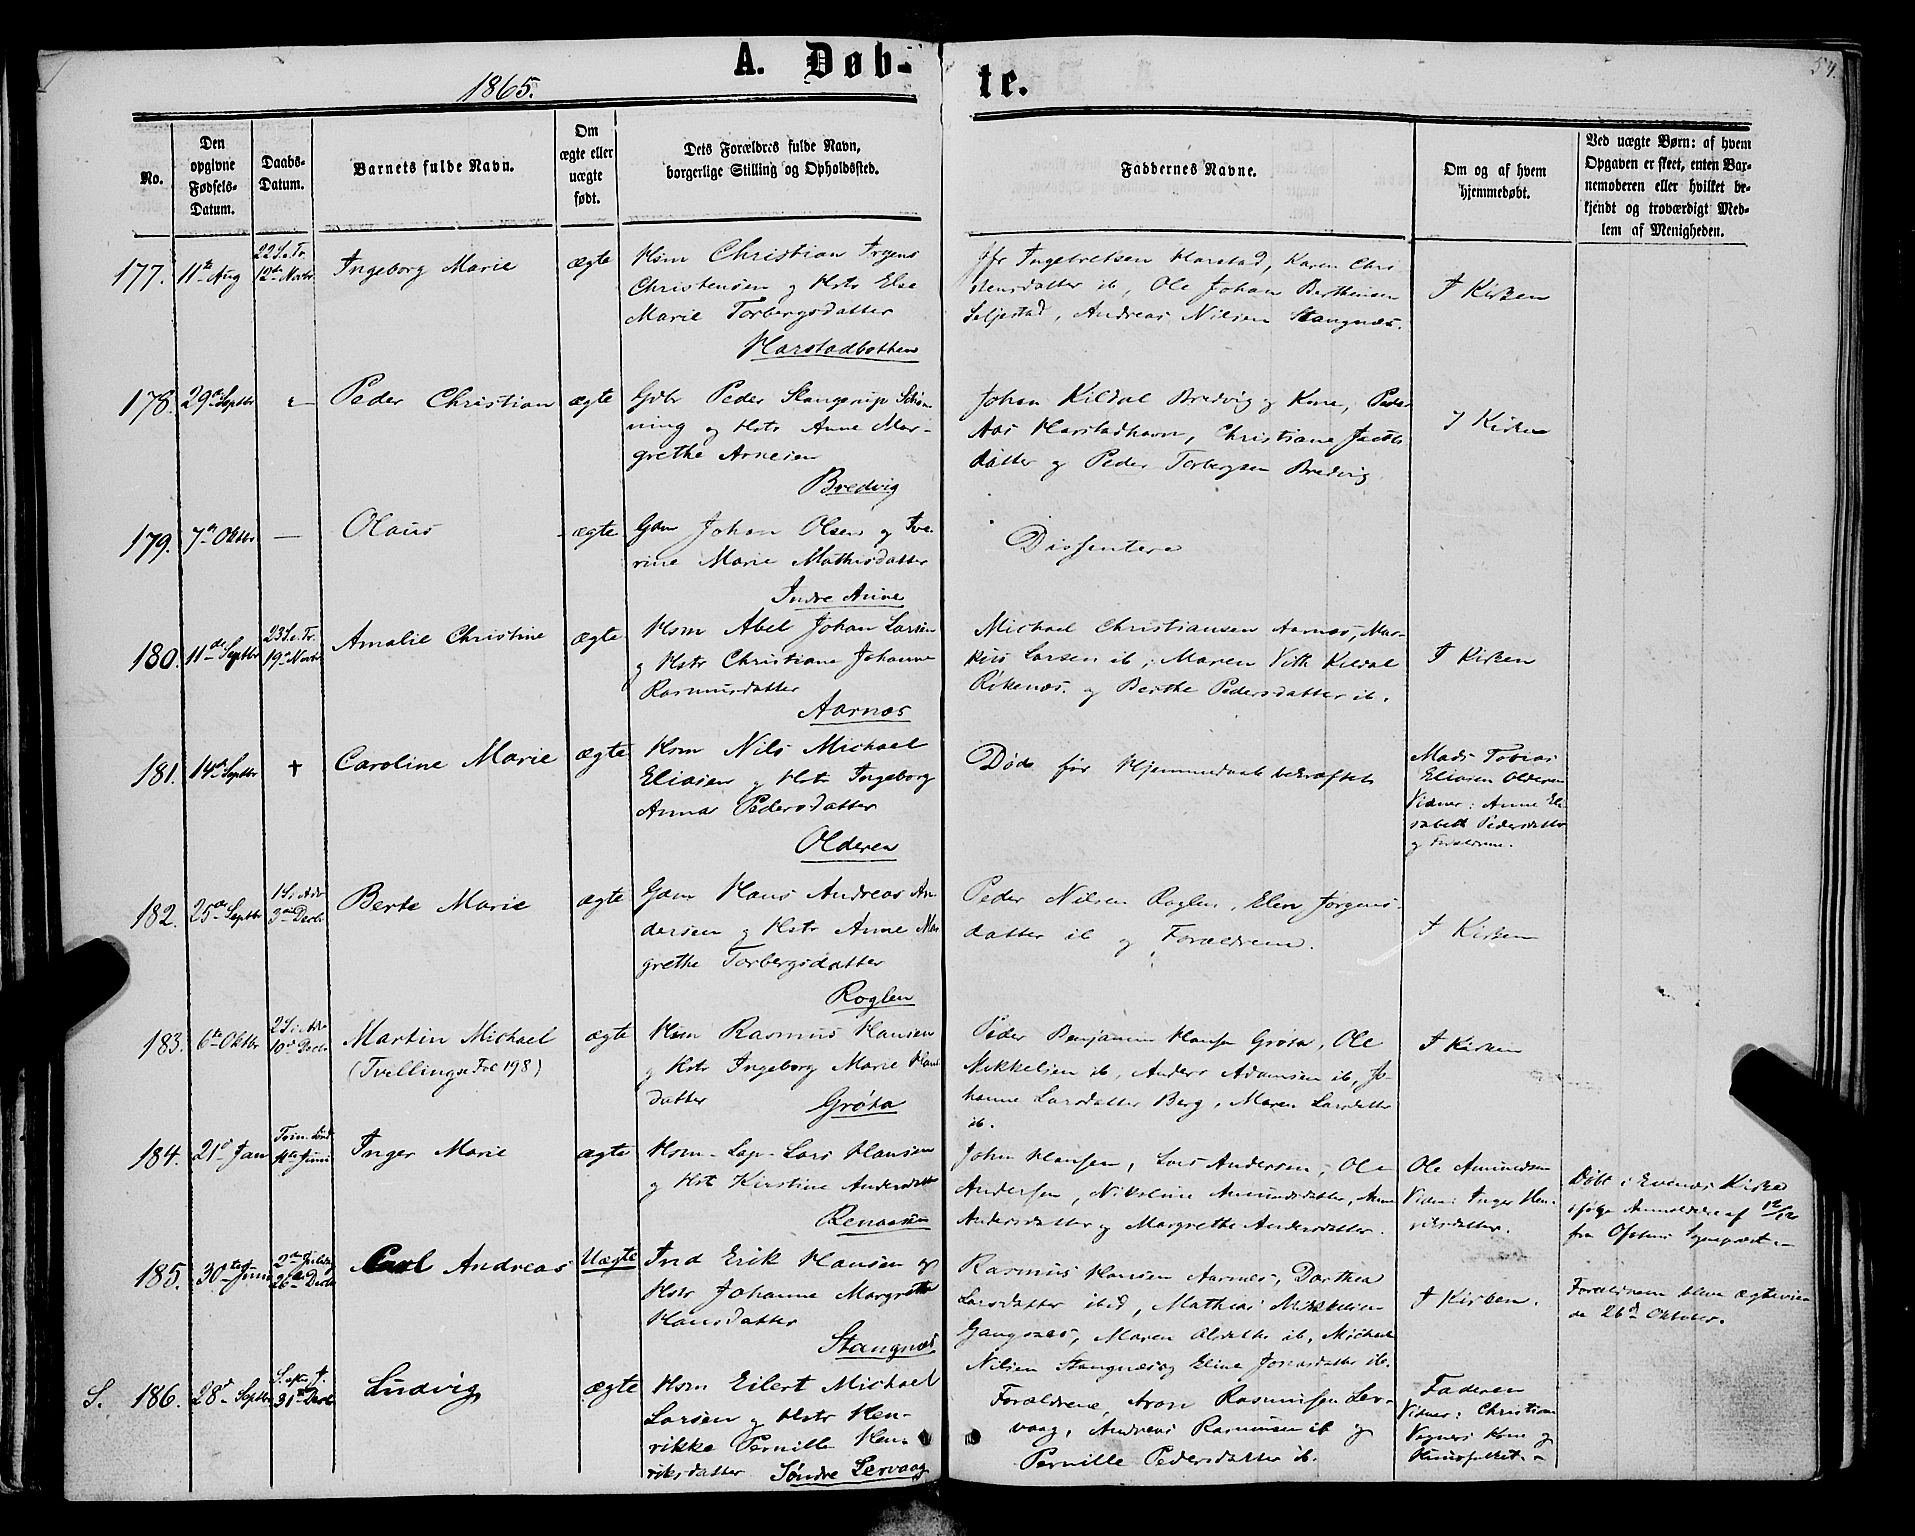 A. Døb-te.
1865.
54.
No.
Den opgivne Fødsels-Datum.
Daabs-Datum.
Barnets fulde Navn.
Om ægte eller uægte født.
Dets Forældres fulde Navn, borgerlige Stilling og Opholdssted.
Faddernes Navne.
Om og af hvem hjemmedøbt.
Ved uægte Børn: af hvem
Opgaven er skeet, enten Bar-
nemoderen eller hvilket be-
kjendt og troværdigt Med-
lem af Menigheden.
177. 11te Aug
22 S. e. Tr.
12te Novbr
Ingeborg Marie
ægte
Hsm Christian
Christensen og Hstr Else
Marie Torbergsdatter
Harstadbotten
Ingebretsen Harstad, Karen Chri-
stensdatter ib, Ole Johan Berthensen
Seljestad, Andreas Nilsen Stangnæs.
I Kirken
178. 29de Septbr
Peder Christian
ægte
Gdbr Peder Stangerup Schøn-
ning og Hstr Anne Mar-
grethe Arnesen
Bredvig
Johan Kildal Bredvig og Kone, Peder
Aas Harstadhavn, Christiane Jacobs
datter og Peder Torbergsen Bredvig
I Kirken
179. 7de Oktbr —
Olaus
ægte
Gdm Johan Olsen og Ive-
rine Marie Mathisdatter
Indre Aune
Dissentere
180. 11de Septbr
23 S. e. Tr.
19de Novbr
Amalie Christine
ægte
Hsm Abel Johan Larsen
og Hstr Christiane Johanne
Rasmusdatter
Aarnæs
Michael Christiansen Aarnæs, Mar-
kus Larsen ib, Maren Vith Kildal
Røkenæs og Berthe Pedersdatter ib.
I Kirken
181. 14de Septbr †
Caroline Marie
ægte
Hsm Nils Michael
Eliasen og Hstr Ingeborg
Anna Pedersdatter
Olderen
Død før Hjemmedaab bekræftet
Mads Tobias
Eliasen Olderen
Vidner: Anne Eli-
sabeth Pedersdatter
og Forældrene.
182. 25de Septbr
1 S. i Adv
3die Decbr
Berte Marie
ægte
Gdm Hans Andreas An-
dersen og Hstr Anne Mar
grethe Torbergsdatter
Roglen
Peder Nilsen Roglen, Elen Jørgens-
datter ib og Forældrene.
I Kirken
183. 6te Oktbr
2 S. i Adv
10de Decbr
Martin Michael
(Tvilling se No 198)
ægte
Hsm Rasmus Hansen
og Hstr Ingeborg Marie Hans
datter
Grøta
Peder Benjamin Hansen Grøta, Ole
Mikkelsen ib, Anders Adamsen ib, Jo-
hanne Larsdatter Berg, Maren Larsdatter
ib.
I Kirken
184. 21de Jan
Trin. Sønd
Juni
Inger Marie
ægte
Hsm- Lap- Lars Hansen
og Hstr Kirstine Andersdatter
Renaasen
John Hansen, Lars Andersen, Ole
Andersen, Nikoline Amundsdatter, Anne
Andersdatter og Margrethe Andersdatter.
Ole Amundsen
Vidne: Inger Hen-
riksdatter.
Døbt i Evenæs Kirke
ifølge Anmeldelse af 12/12
fra Ofotens Sognepræst.-
185. 30te Juni
2den Juledag
26de Decbr
Carl Andreas
Uægte
Ind Erik Hansen og
Hstr Johanne Margrethe
Hansdatter
Stangnæs
Rasmus Hansen Aarnæs, Dorthea
Larsdatter ibid, Mathias Mikkelsen
Gangsaas, Maren Olsdatter ib, Michael
Nilsen Stangnæs og Eline Jonasdatter ib.
I Kirken.
Forældrene bleve ægtevie-
de 26de Oktober.
S. 186. 28de Septbr
S. efter J.
31te Decbr
Ludvig
ægte
Hsm Eilert Michael
Larsen og Hstr Hen-
rikke Pernille Hen-
riksdatter Søndre Lervaag
Forældrene, Aron Rasmussen Ler-
vaag, Andreas Rasmusen ib og
Pernille Pedersdatter ib.
Faderen
Vidner: Christian
Vagners Kone og
Huusfolket.-